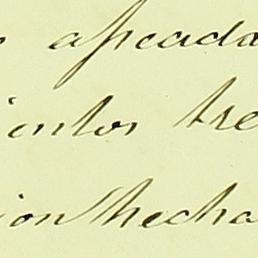 apeada
ientos tre
ion hecha